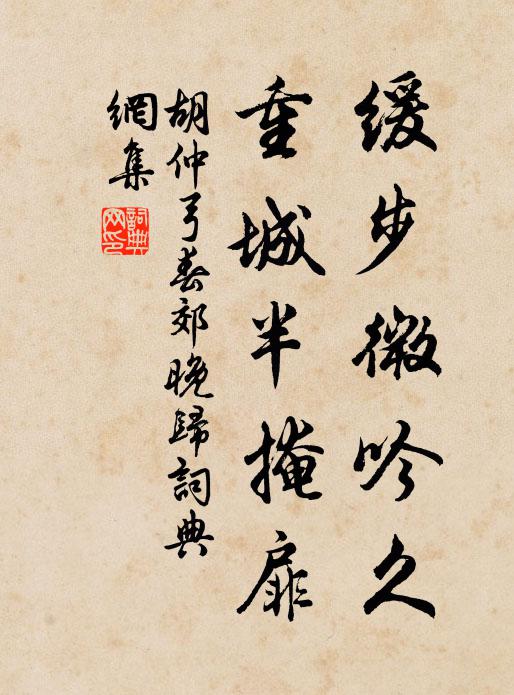 緩步微吟久
重城半掩扉
胡仲弓春郊晚歸詞典
網集
詞典
网印